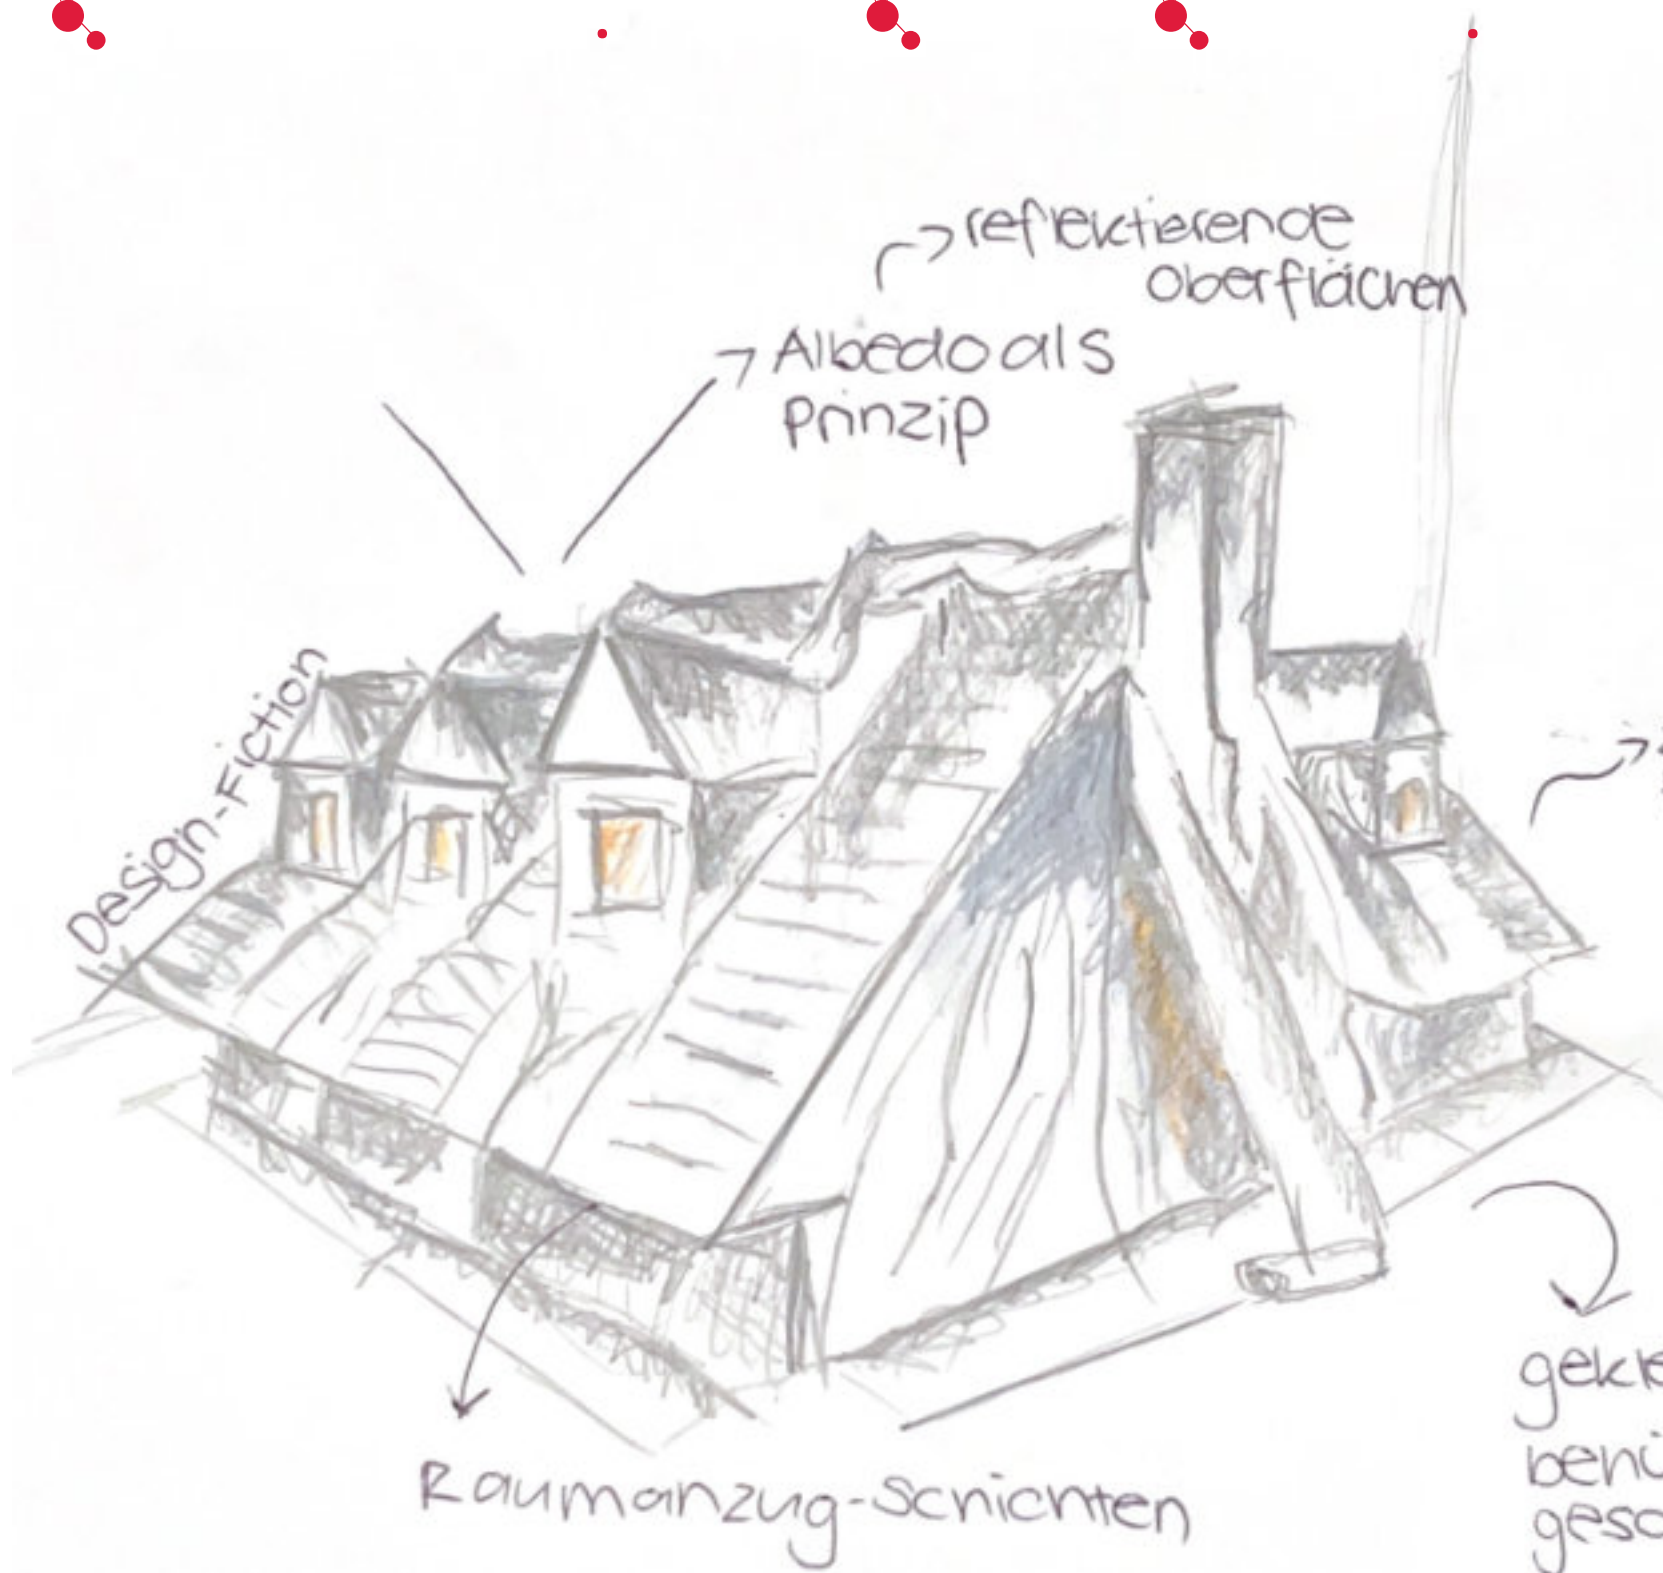 reflektierende
Oberflächen
Albedo als
Prinzip
Design-Fiction
Raumanzug-Schichten